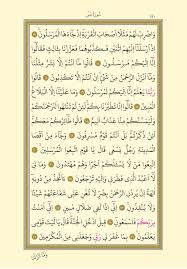 سُورَةُ يٰسٓ ٤٤١
وَاضْرِبْ لَهُمْ مَثَلًا أَصْحَابَ الْقَرْيَةِ إِذْ جَاءَهَا الْمُرْسَلُونَ
إِذْ أَرْسَلْنَا إِلَيْهِمُ اثْنَيْنِ فَكَذَّبُوهُمَا فَعَزَّزْنَا بِثَالِثٍ فَقَالُوا
إِنَّا إِلَيْكُمْ مُرْسَلُونَ قَالُوا مَا أَنْتُمْ إِلَّا بَشَرٌ مِثْلُنَا
وَمَا أَنْزَلَ الرَّحْمٰنُ مِنْ شَيْءٍ إِنْ أَنْتُمْ إِلَّا تَكْذِبُونَ قَالُوا
رَبُّنَا يَعْلَمُ إِنَّا إِلَيْكُمْ لَمُرْسَلُونَ وَمَا عَلَيْنَا إِلَّا الْبَلَاغُ
الْمُبِينُ قَالُوا إِنَّا تَطَيَّرْنَا بِكُمْ لَئِنْ لَمْ تَنْتَهُوا لَنَرْجُمَنَّكُمْ
وَلَيَمَسَّنَّكُمْ مِنَّا عَذَابٌ أَلِيمٌ قَالُوا طَائِرُكُمْ مَعَكُمْ أَئِنْ
ذُكِّرْتُمْ بَلْ أَنْتُمْ قَوْمٌ مُسْرِفُونَ وَجَاءَ مِنْ أَقْصَا
الْمَدِينَةِ رَجُلٌ يَسْعَى قَالَ يَا قَوْمِ اتَّبِعُوا الْمُرْسَلِينَ
اتَّبِعُوا مَنْ لَا يَسْأَلُكُمْ أَجْرًا وَهُمْ مُهْتَدُونَ وَمَا لِيَ
لَا أَعْبُدُ الَّذِي فَطَرَنِي وَإِلَيْهِ تُرْجَعُونَ أَأَتَّخِذُ مِنْ
دُونِهِ آلِهَةً إِنْ يُرِدْنِ الرَّحْمٰنُ بِضُرٍّ لَا تُغْنِ عَنِّي شَفَاعَتُهُمْ شَيْئًا
وَلَا يُنْقِذُونِ إِنِّي إِذًا لَفِي ضَلَالٍ مُبِينٍ إِنِّي آمَنْتُ
بِرَبِّكُمْ فَاسْمَعُونِ قِيلَ ادْخُلِ الْجَنَّةَ قَالَ يَا لَيْتَ قَوْمِي
يَعْلَمُونَ بِمَا غَفَرَ لِي رَبِّي وَجَعَلَنِي مِنَ الْمُكْرَمِينَ
وَمَا أَنْزَلْنَا